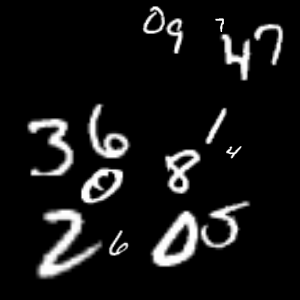 0 9 7 4 7
3 6 1
0 8 4
2 6 0 5